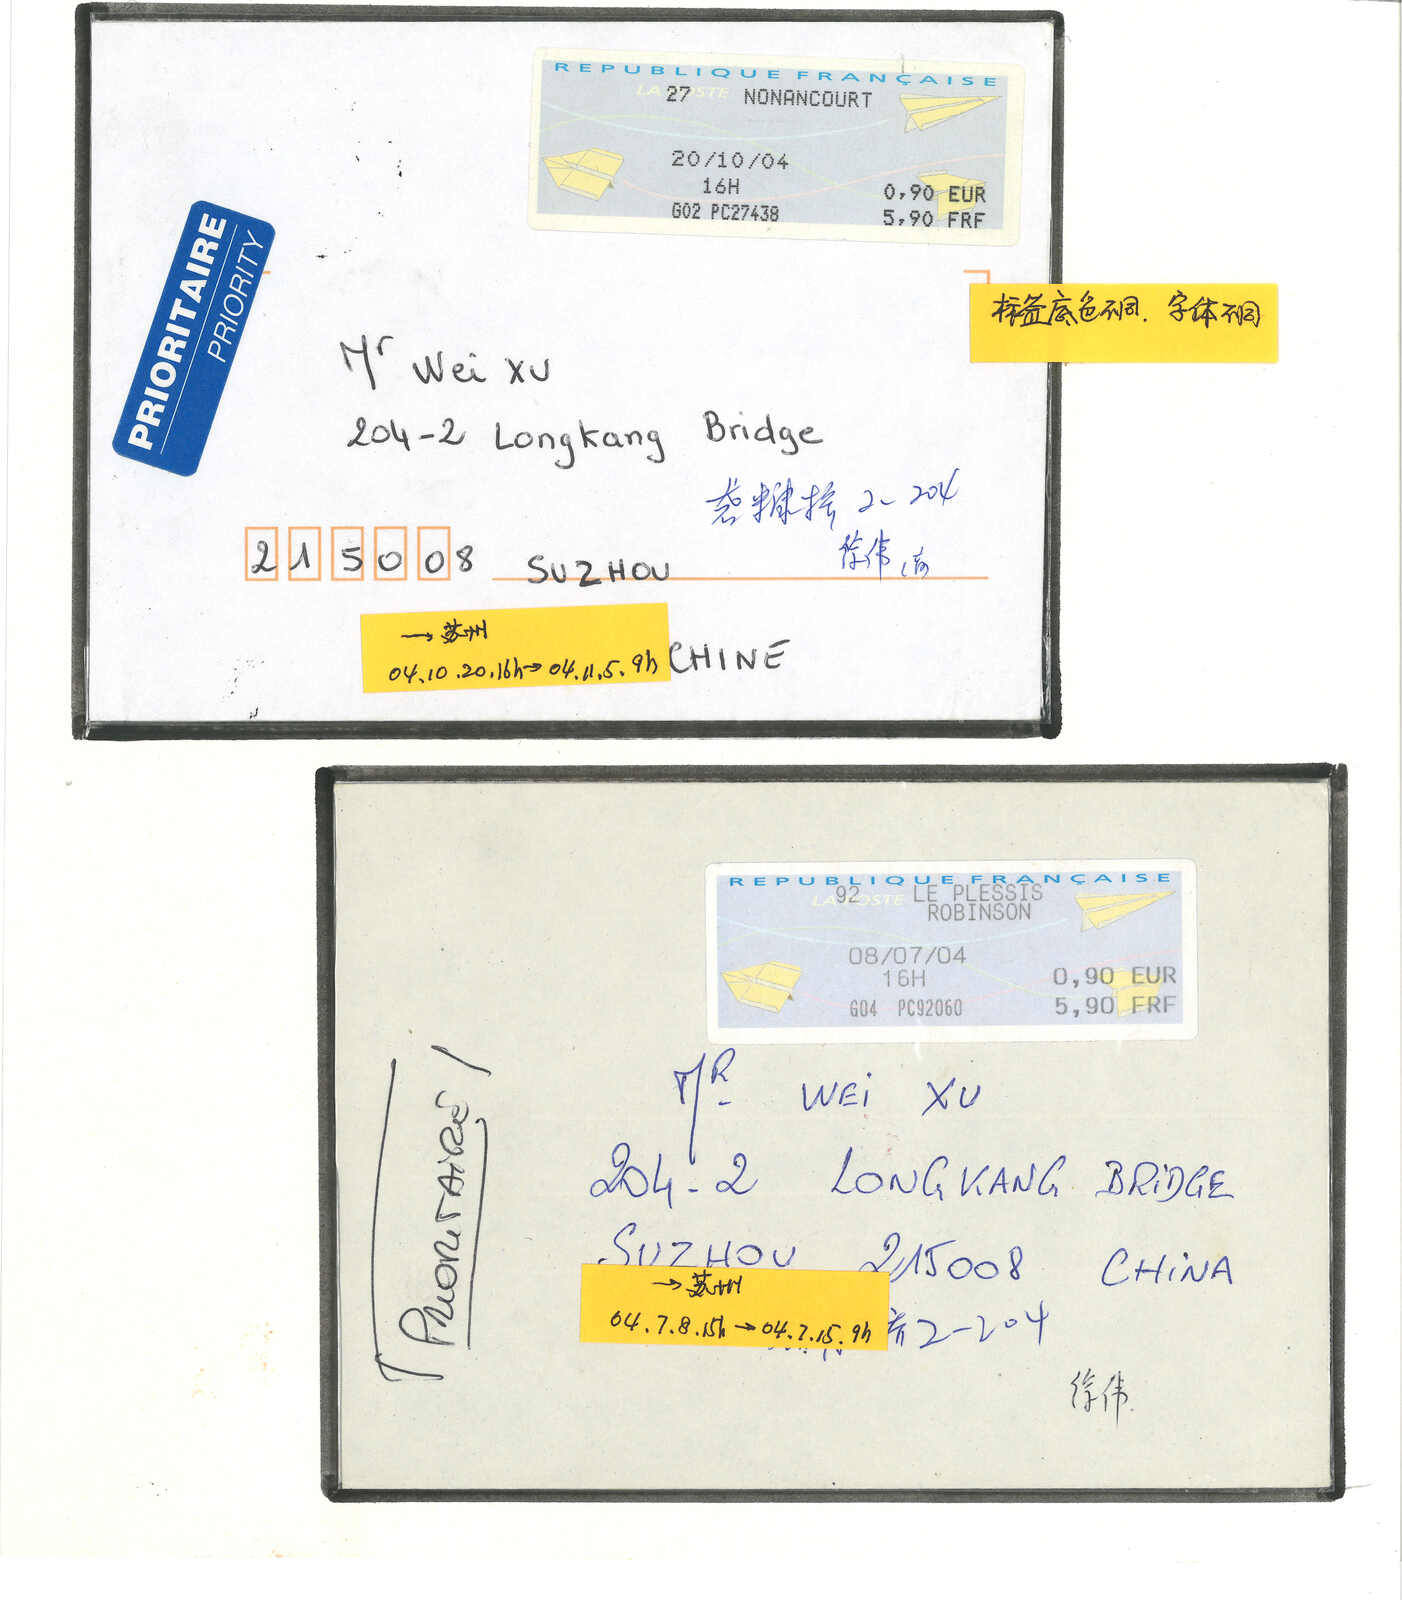 REPUBLIQUE FRANÇAISE
LA POSTE
27 NONANCOURT
20/10/04
16H
0,90 EUR
G02 PC27438
5,90 FRF
PRIORITAIRE
PRIORITY
标签底色不同. 字体不同
Mr Wei XU
204-2 Longkang Bridge
2-204
徐伟
215008 SUZHOU
→苏州
04.10.20.16h→04.11.5.9h
CHINE
REPUBLIQUE FRANÇAISE
LA POSTE
92 LE PLESSIS
ROBINSON
08/07/04
16H
0,90 EUR
G04 PC92060
5,90 FRF
PRIORITAIRE
MR WEi XU
204-2 LONGKANG BRiDGE
SUZHOU 215008 CHiNA
→苏州
04.7.8.15h→04.7.15.9h
2-204
徐伟